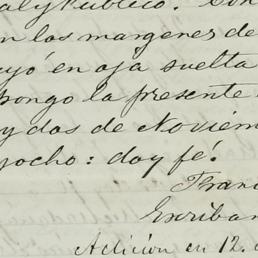 al y Publico. Con
n los margenes de
yó en oja suelta
pongo la presente
y dos de Noviem
yocho: doy fé.
Fran
Escriban
Adicion en 12.